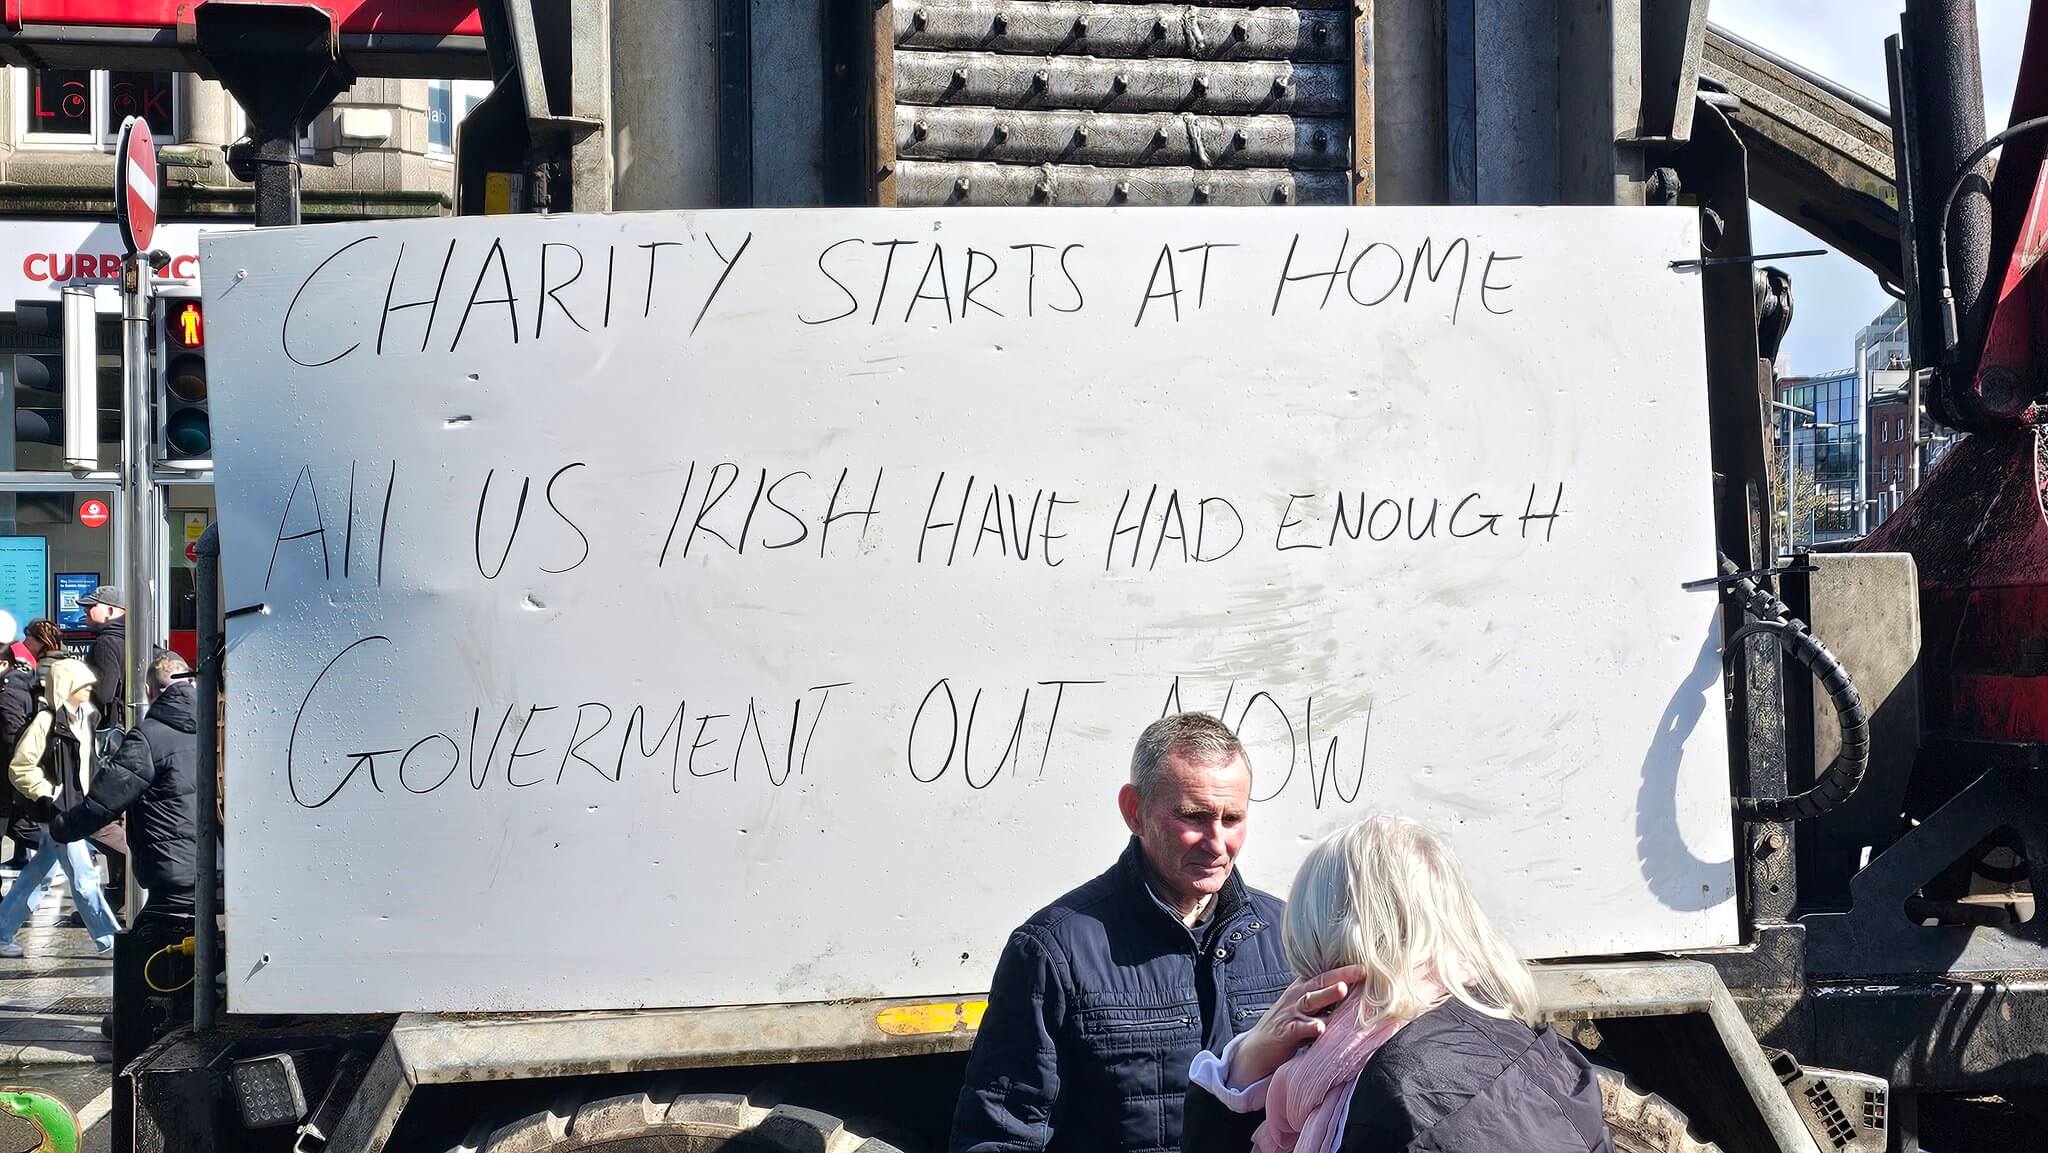 LOOK
CHARITY STARTS AT HOME
All US IRISH HAVE HAD ENOUGH
GOVERMENT OUT NOW